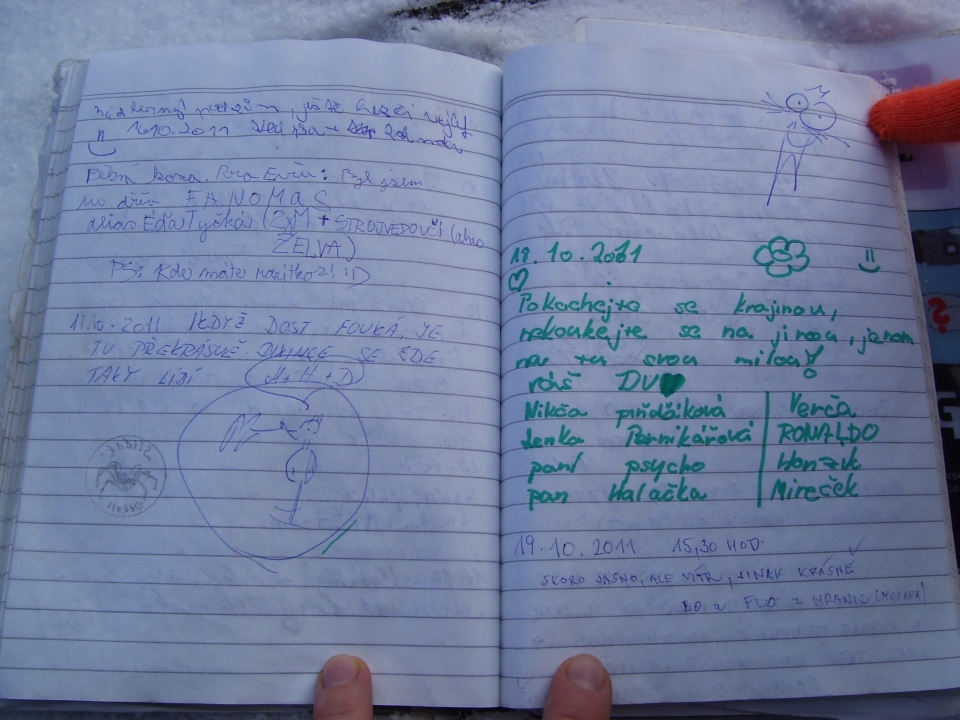 Nádherný podzim,
16.10.2011
Pěkná koza. Pro Evču: Byl jsem
tu dřív FANOMAS
alias Eďa Tyčkáč (2xM + STROJVEDOUCÍ (alias
ŽELVA)
PS: Kde máte razítko?! :D
17.10.2011 I KDYŽ DOST FOUKÁ, JE
TU PŘEKRÁSNĚ. SE ZDE
TAKY LÍBÍ (M+H+D)
19.10.2011
Pokochejte se krajinou,
nekoukejte se na jinou, jenom
na tu svou milou!
váš DV
Nikča pinďáková Verča
Lenka Pernikářová RONALDO
paní psycho Honzík
pan Halačka Mireček
19.10.2011 15,30 HOD.
SKORO JASNO, ALE VÍTR, JINAK KRÁSNĚ
BO a FLO z HRANIC (MORAVA)